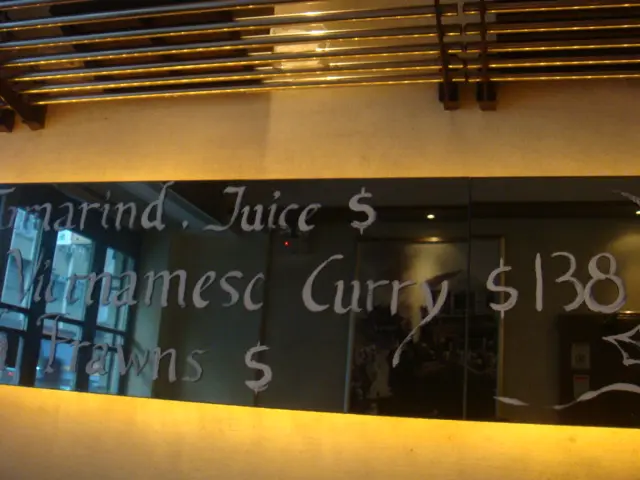 Tamarind. Juice $
Vietnamese Curry $138
Prawns $